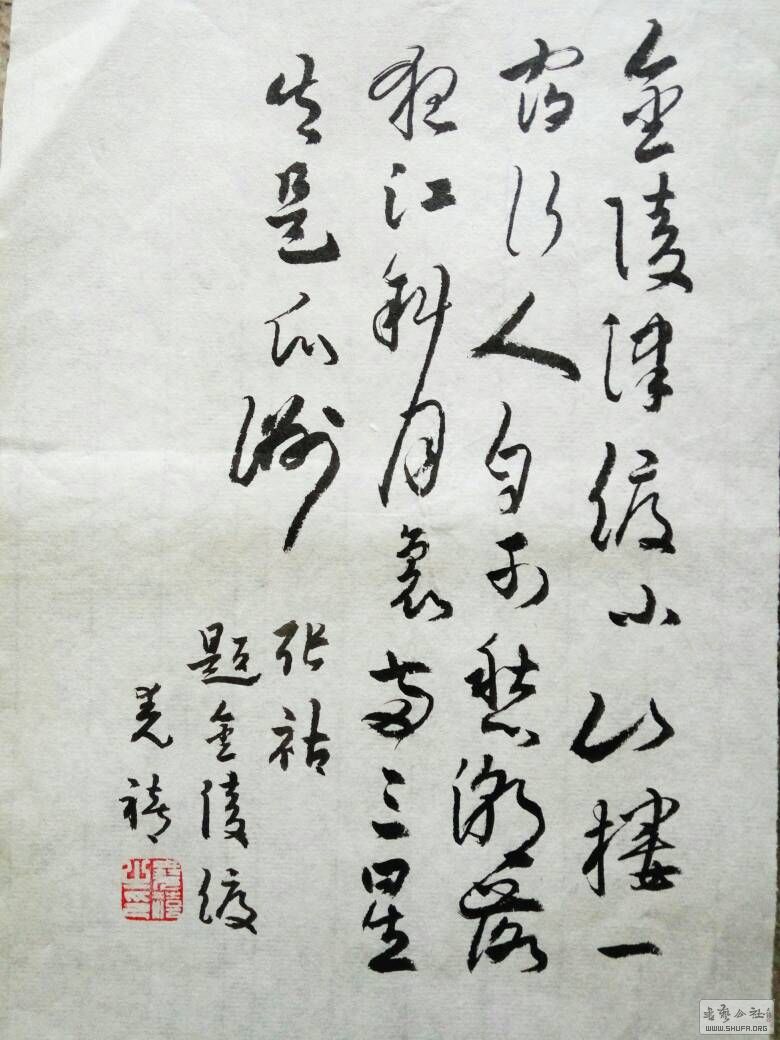 金陵津渡小山樓一
宿行人自可愁潮落
夜江斜月裏兩三星
火是瓜洲
张祜
題金陵渡
書藝公社
WWW.SHUFA.ORG